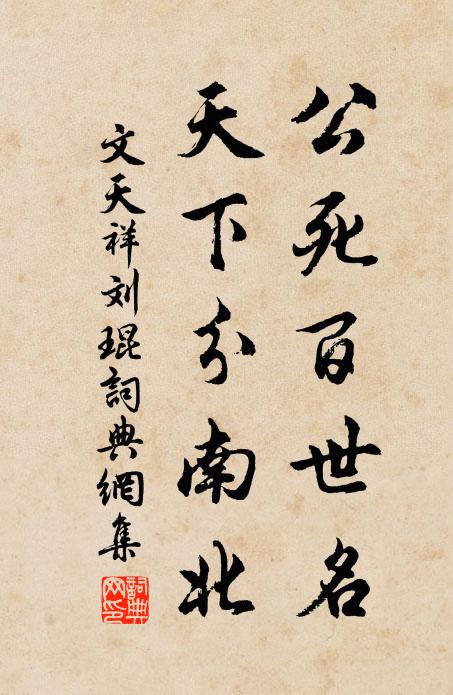 公死百世名
天下分南北
文天祥刘琨詞典網集
詞典網印